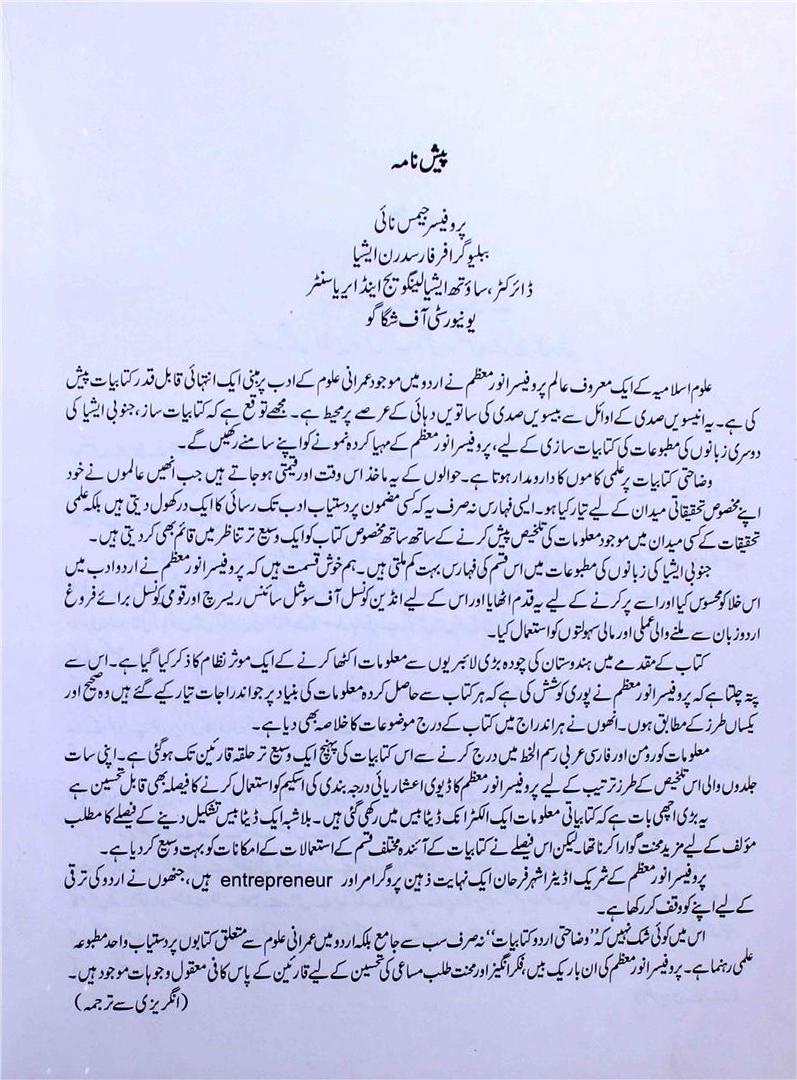 پیش نامہ
پروفیسر جیمس نائی
ببلیوگرافر فار سدرن ایشیا
ڈائرکٹر، ساؤتھ ایشیا لینگویج اینڈ ایریا سنٹر
یونیورسٹی آف شگاگو
علوم اسلامیہ کے ایک معروف عالم پروفیسر انور معظم نے اردو میں موجود عمرانی علوم کے ادب پر مبنی ایک انتہائی قابل قدر کتابیات پیش
کی ہے۔ یہ انیسویں صدی کے اوائل سے بیسویں صدی کی ساتویں دہائی کے عرصے پر محیط ہے۔ مجھے توقع ہے کہ کتابیات ساز، جنوبی ایشیا کی
دوسری زبانوں کی مطبوعات کی کتابیات سازی کے لیے، پروفیسر انور معظم کے مہیا کردہ نمونے کو اپنے سامنے رکھیں گے۔
وضاحتی کتابیات پر علمی کاموں کا دارومدار ہوتا ہے۔ حوالوں کے یہ ماخذ اس وقت اور قیمتی ہو جاتے ہیں جب انھیں عالموں نے خود
اپنے مخصوص تحقیقاتی میدان کے لیے تیار کیا ہو۔ ایسی فہارس نہ صرف یہ کہ کسی مضمون پر دستیاب ادب تک رسائی کا ایک در کھول دیتی ہیں بلکہ علمی
تحقیقات کے کسی میدان میں موجود معلومات کی تلخیص پیش کرنے کے ساتھ ساتھ مخصوص کتاب کو ایک وسیع تر تناظر میں قائم بھی کر دیتی ہیں۔
جنوبی ایشیا کی زبانوں کی مطبوعات میں اس قسم کی فہارس بہت کم ملتی ہیں۔ ہم خوش قسمت ہیں کہ پروفیسر انور معظم نے اردو ادب میں
اس خلا کو محسوس کیا اور اسے پر کرنے کے لیے یہ قدم اٹھایا اور اس کے لیے انڈین کونسل آف سوشل سائنس ریسرچ اور قومی کونسل برائے فروغ
اردو زبان سے ملنے والی عملی اور مالی سہولتوں کو استعمال کیا۔
کتاب کے مقدمے میں ہندوستان کی چودہ بڑی لائبریریوں سے معلومات اکٹھا کرنے کے ایک موثر نظام کا ذکر کیا گیا ہے۔ اس سے
پتہ چلتا ہے کہ پروفیسر انور معظم نے پوری کوشش کی ہے کہ ہر کتاب سے حاصل کردہ معلومات کی بنیاد پر جو اندراجات تیار کیے گئے ہیں وہ صحیح اور
یکساں طرز کے مطابق ہوں۔ انھوں نے ہر اندراج میں کتاب کے درج موضوعات کا خلاصہ بھی دیا ہے۔
معلومات کو رومن اور فارسی عربی رسم الخط میں درج کرنے سے اس کتابیات کی پہنچ ایک وسیع تر حلقہ قارئین تک ہو گئی ہے۔ اپنی سات
جلدوں والی اس تلخیص کے طرز ترتیب کے لیے پروفیسر انور معظم کا ڈیوی اعشاریائی درجہ بندی کی اسکیم کو استعمال کرنے کا فیصلہ بھی قابل تحسین ہے
یہ بڑی اچھی بات ہے کہ کتابیاتی معلومات ایک الکٹرانک ڈیٹا بیس میں رکھی گئی ہیں۔ بلاشبہ ایک ڈیٹا بیس تشکیل دینے کے فیصلے کا مطلب
مؤلف کے لیے مزید محنت گوارا کرنا تھا۔ لیکن اس فیصلے نے کتابیات کے آئندہ مختلف قسم کے استعمالات کے امکانات کو بہت وسیع کر دیا ہے۔
پروفیسر انور معظم کے شریک اڈیٹر اشہر فرحان ایک نہایت ذہین پروگرامر اور entrepreneur ہیں، جنھوں نے اردو کی ترقی
کے لیے اپنے کو وقف کر رکھا ہے۔
اس میں کوئی شک نہیں کہ ”وضاحتی اردو کتابیات“ نہ صرف سب سے جامع بلکہ اردو میں عمرانی علوم سے متعلق کتابوں پر دستیاب واحد مطبوعہ
علمی رہنما ہے۔ پروفیسر انور معظم کی ان باریک بیں، فکر انگیز اور محنت طلب مساعی کی تحسین کے لیے قارئین کے پاس کافی معقول وجوہات موجود ہیں۔
(انگریزی سے ترجمہ)